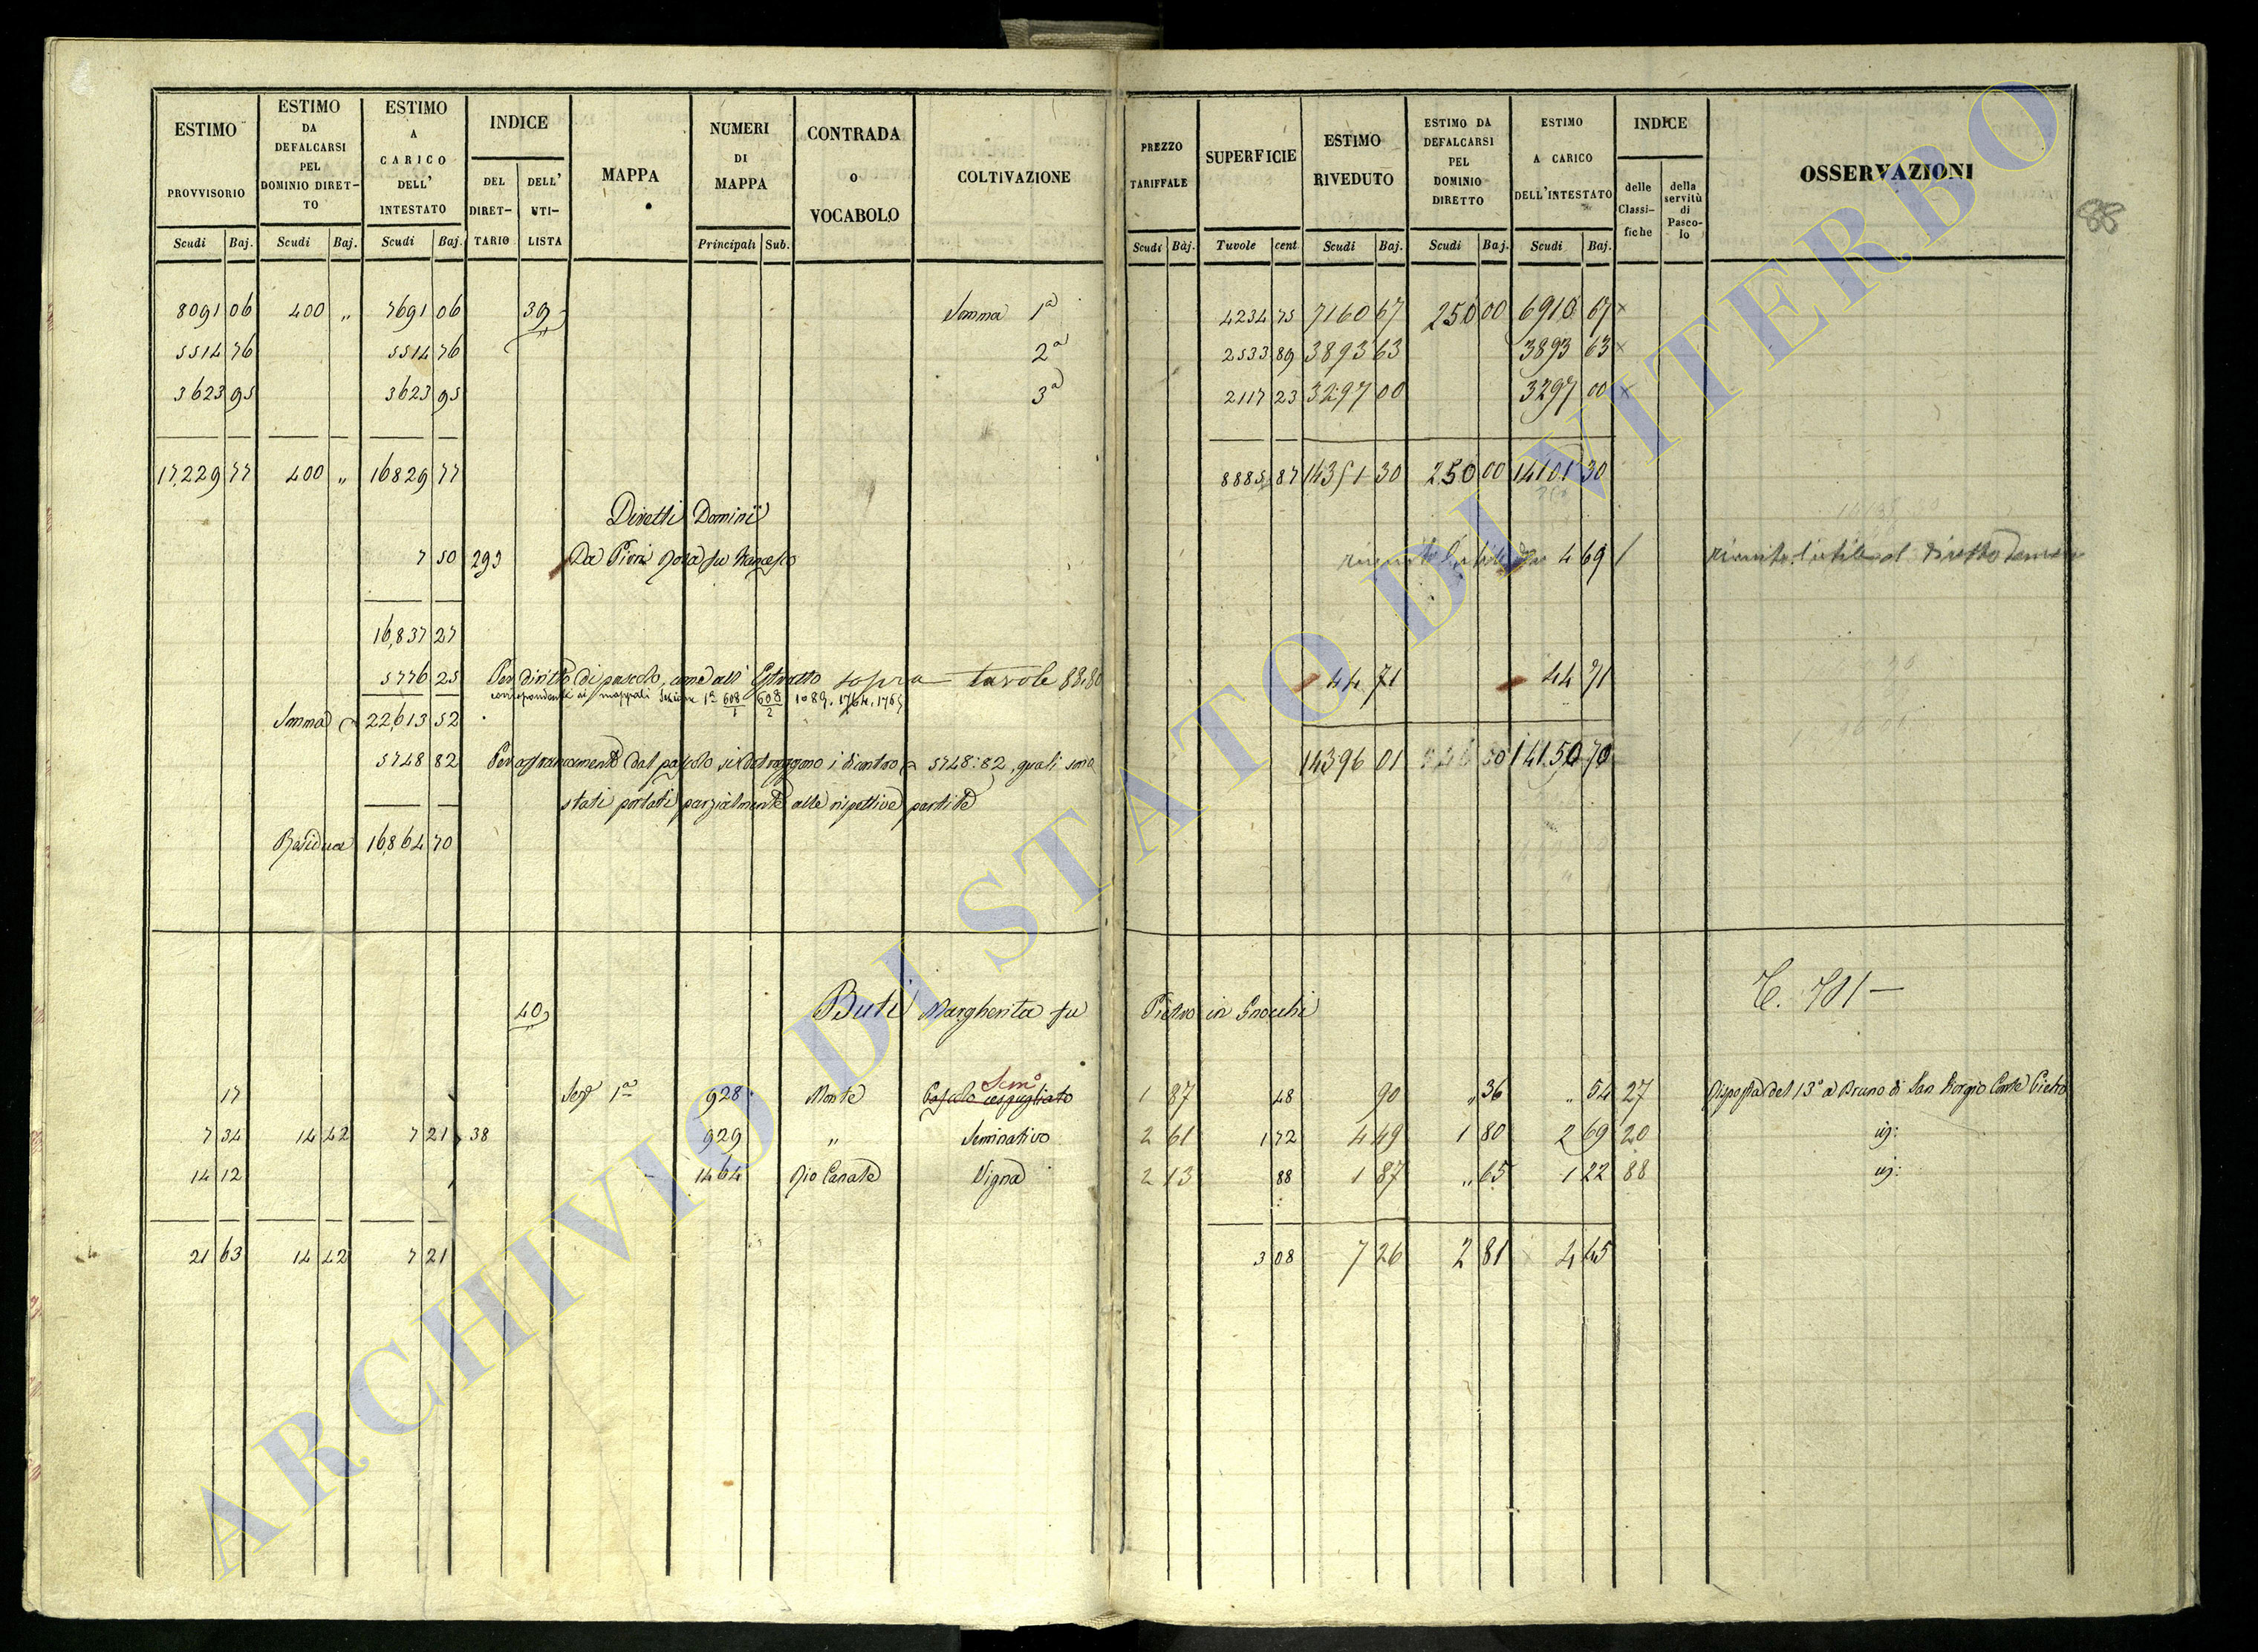 ESTIMO PROVVISORIO Scudi Baj. ESTIMO DA DEFALCARSI PEL DOMINIO DIRETTO Scudi Baj. ESTIMO A CARICO DELL' INTESTATO Scudi Baj. INDICE DEL DIRET-TARIO DELL' UTI-LISTA MAPPA NUMERI DI MAPPA Principali Sub. CONTRADA O VOCABOLO COLTIVAZIONE PREZZO TARIFFALE Scudi Baj. SUPERFICIE Tavole cent ESTIMO RIVEDUTO Scudi Baj. ESTIMO DA DEFALCARSI PEL DOMINIO DIRETTO Scudi Baj. ESTIMO A CARICO DELL'INTESTATO Scudi Baj. INDICE delle Classi-fiche della servitù di Pasco-lo OSSERVAZIONI
88
8091 06 400 " 7691 06 39 Somma 1ª 4234 75 7160 67 250 00 6910 67 ×
5514 76 5514 76 2ª 2533 89 3893 63 3893 63 ×
3623 95 3623 95 3ª 2117 23 3297 00 3297 00 ×
17,229 77 400 " 16829 77 8885 87 14351 30 250 00 14101 30
Diretti Dominii
7 50 293 Da fu Francesco riunito l'utile 4 69 riunito l'utile al diretto
16,837 27
5776 25 Per diritto di pascolo, come all' Estratto sopra tavole 88.80 44 71 44 71
corrispondenti ai mappali Sezione 1ª 608/1 608/2 1089. 1764. 1765
Somma 22,613 52
5748 82 Per affrancamento dal pascolo si detraggono i dicontro 5748:82, quali sono 14396 01 14150 70
stati portati parzialmente alle rispettive partite
Residua 16,864 70
40 Buti Margherita fu Pietro in Gnocchi C. 701 —
Sem°
17 Sez 1ª 928 Monte Pascolo cespugliato 1 87 48 90 " 36 " 54 27 Risposta del 13° a Bruno di San Giorgio Conte Pietro
7 34 14 42 7 21 38 929 " Seminativo 2 61 1 72 4 49 1 80 2 69 20 id:
14 12 1464 Rio Canale Vigna 2 13 88 1 87 " 65 1 22 88 id:
21 63 14 42 7 21 3 08 7 26 2 81 4 45
ARCHIVIO DI STATO DI VITERBO